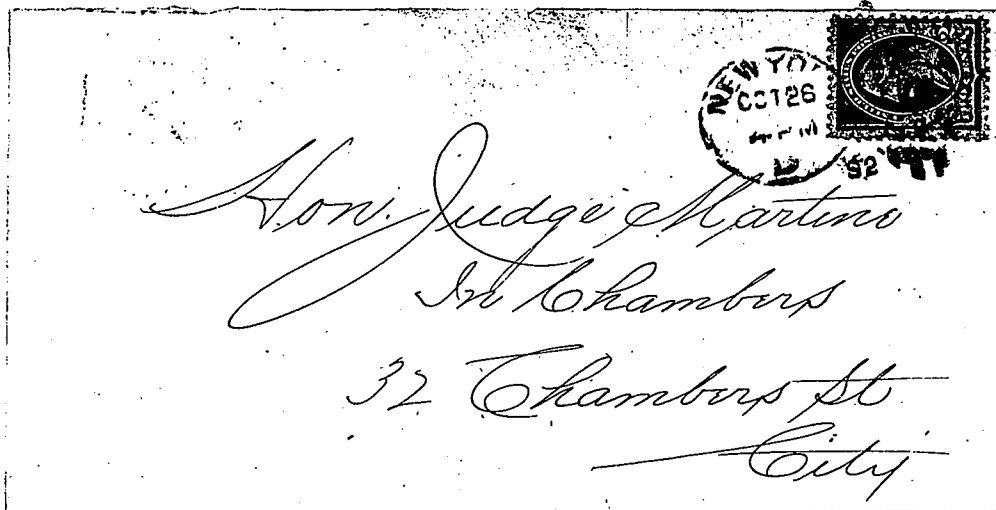 NEW YO
OCT 26
4 PM
D
92
Hon. Judge Martine
In Chambers
32 Chambers St
City